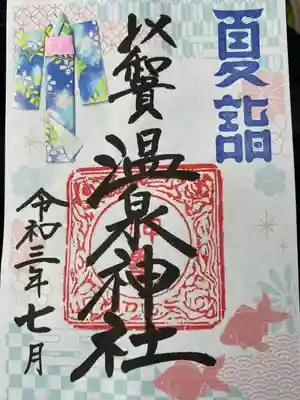 夏詣
賀温泉神社
令和三年七月